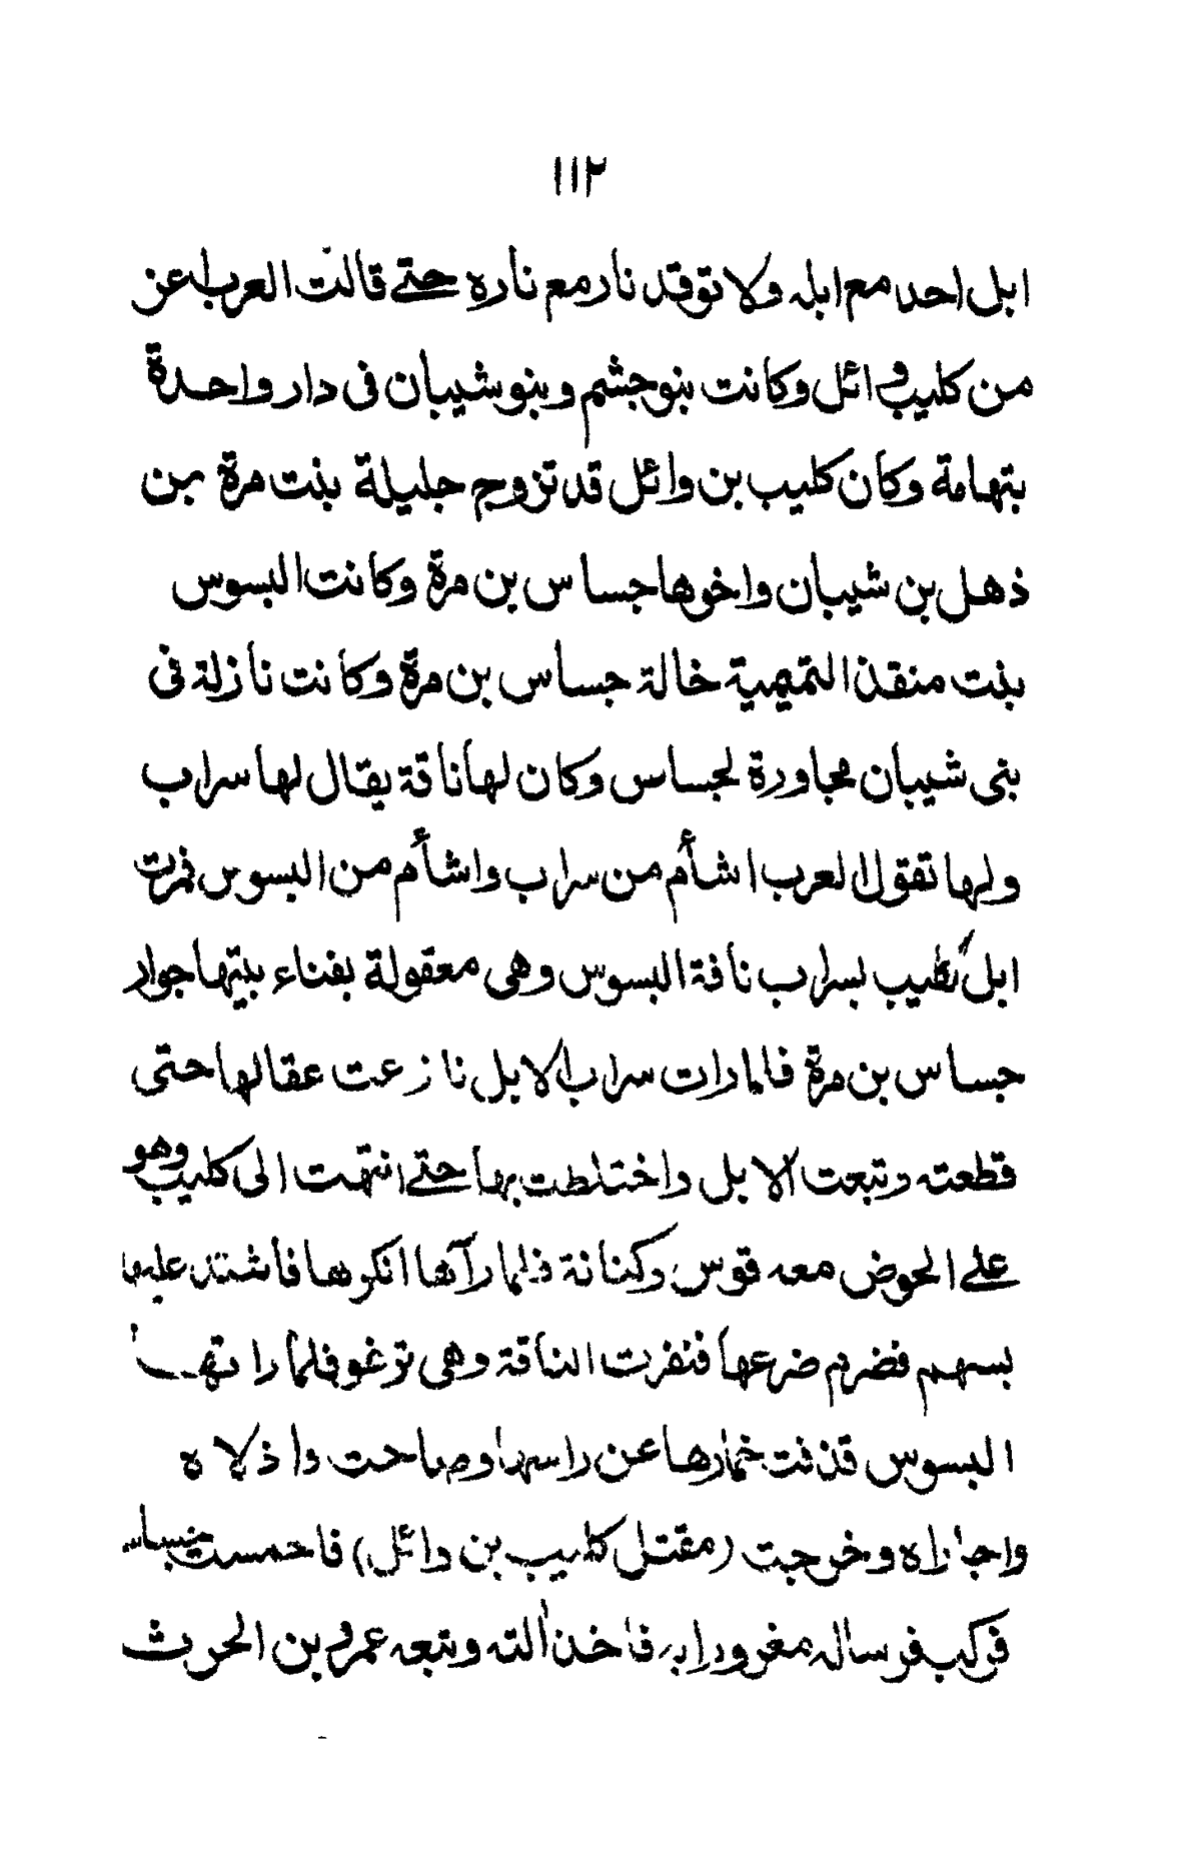 ١١٢
ابل احد مع ابله ولا توقد نار مع ناره حتے قالت العرب اعز
من كليب وائل وكانت بنو جشم وبنو شيبان فى دار واحدة
بتهامة وكان كليب بن وائل قد تزوج جليلة بنت مرة بن
ذهل بن شيبان واخوها جساس بن مرة وكانت البسوس
بنت منقذ التميمية خالة جساس بن مرة وكانت نازلة فى
بنى شيبان مجاورة لجساس وكان لها ناقة يقال لها سراب
ولها تقول العرب اشأم من سراب واشأم من البسوس فمرت
ابل كليب بسراب ناقة البسوس وهى معقولة بفناء بيتها جوار
جساس بن مرة فلما رات سراب الابل نازعت عقالها حتى
قطعته وتبعت الابل واختلطت بها حتے انتهت الى كليب وهو
علے الحوض معه قوس وكنانة فلما رآها انكرها فاشتد عليها
بسهم فضرم ضرعها فنفرت الناقة وهى ترغو فلما راتها
البسوس قذفت خمارها عن راسها وصاحت واذلاه
واجاراه وخرجت (مقتل كليب بن وائل) فاحمست جساس
فركب فرساله مغرورا به فاخذ آلته وتبعه عمرو بن الحرث